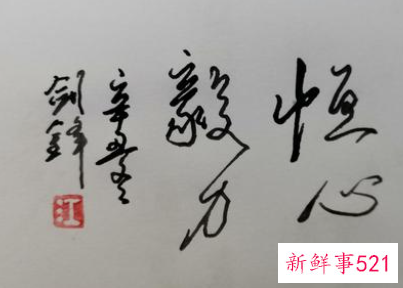 恒心
毅力
辛丑冬
剑鋒
江
新鲜事521